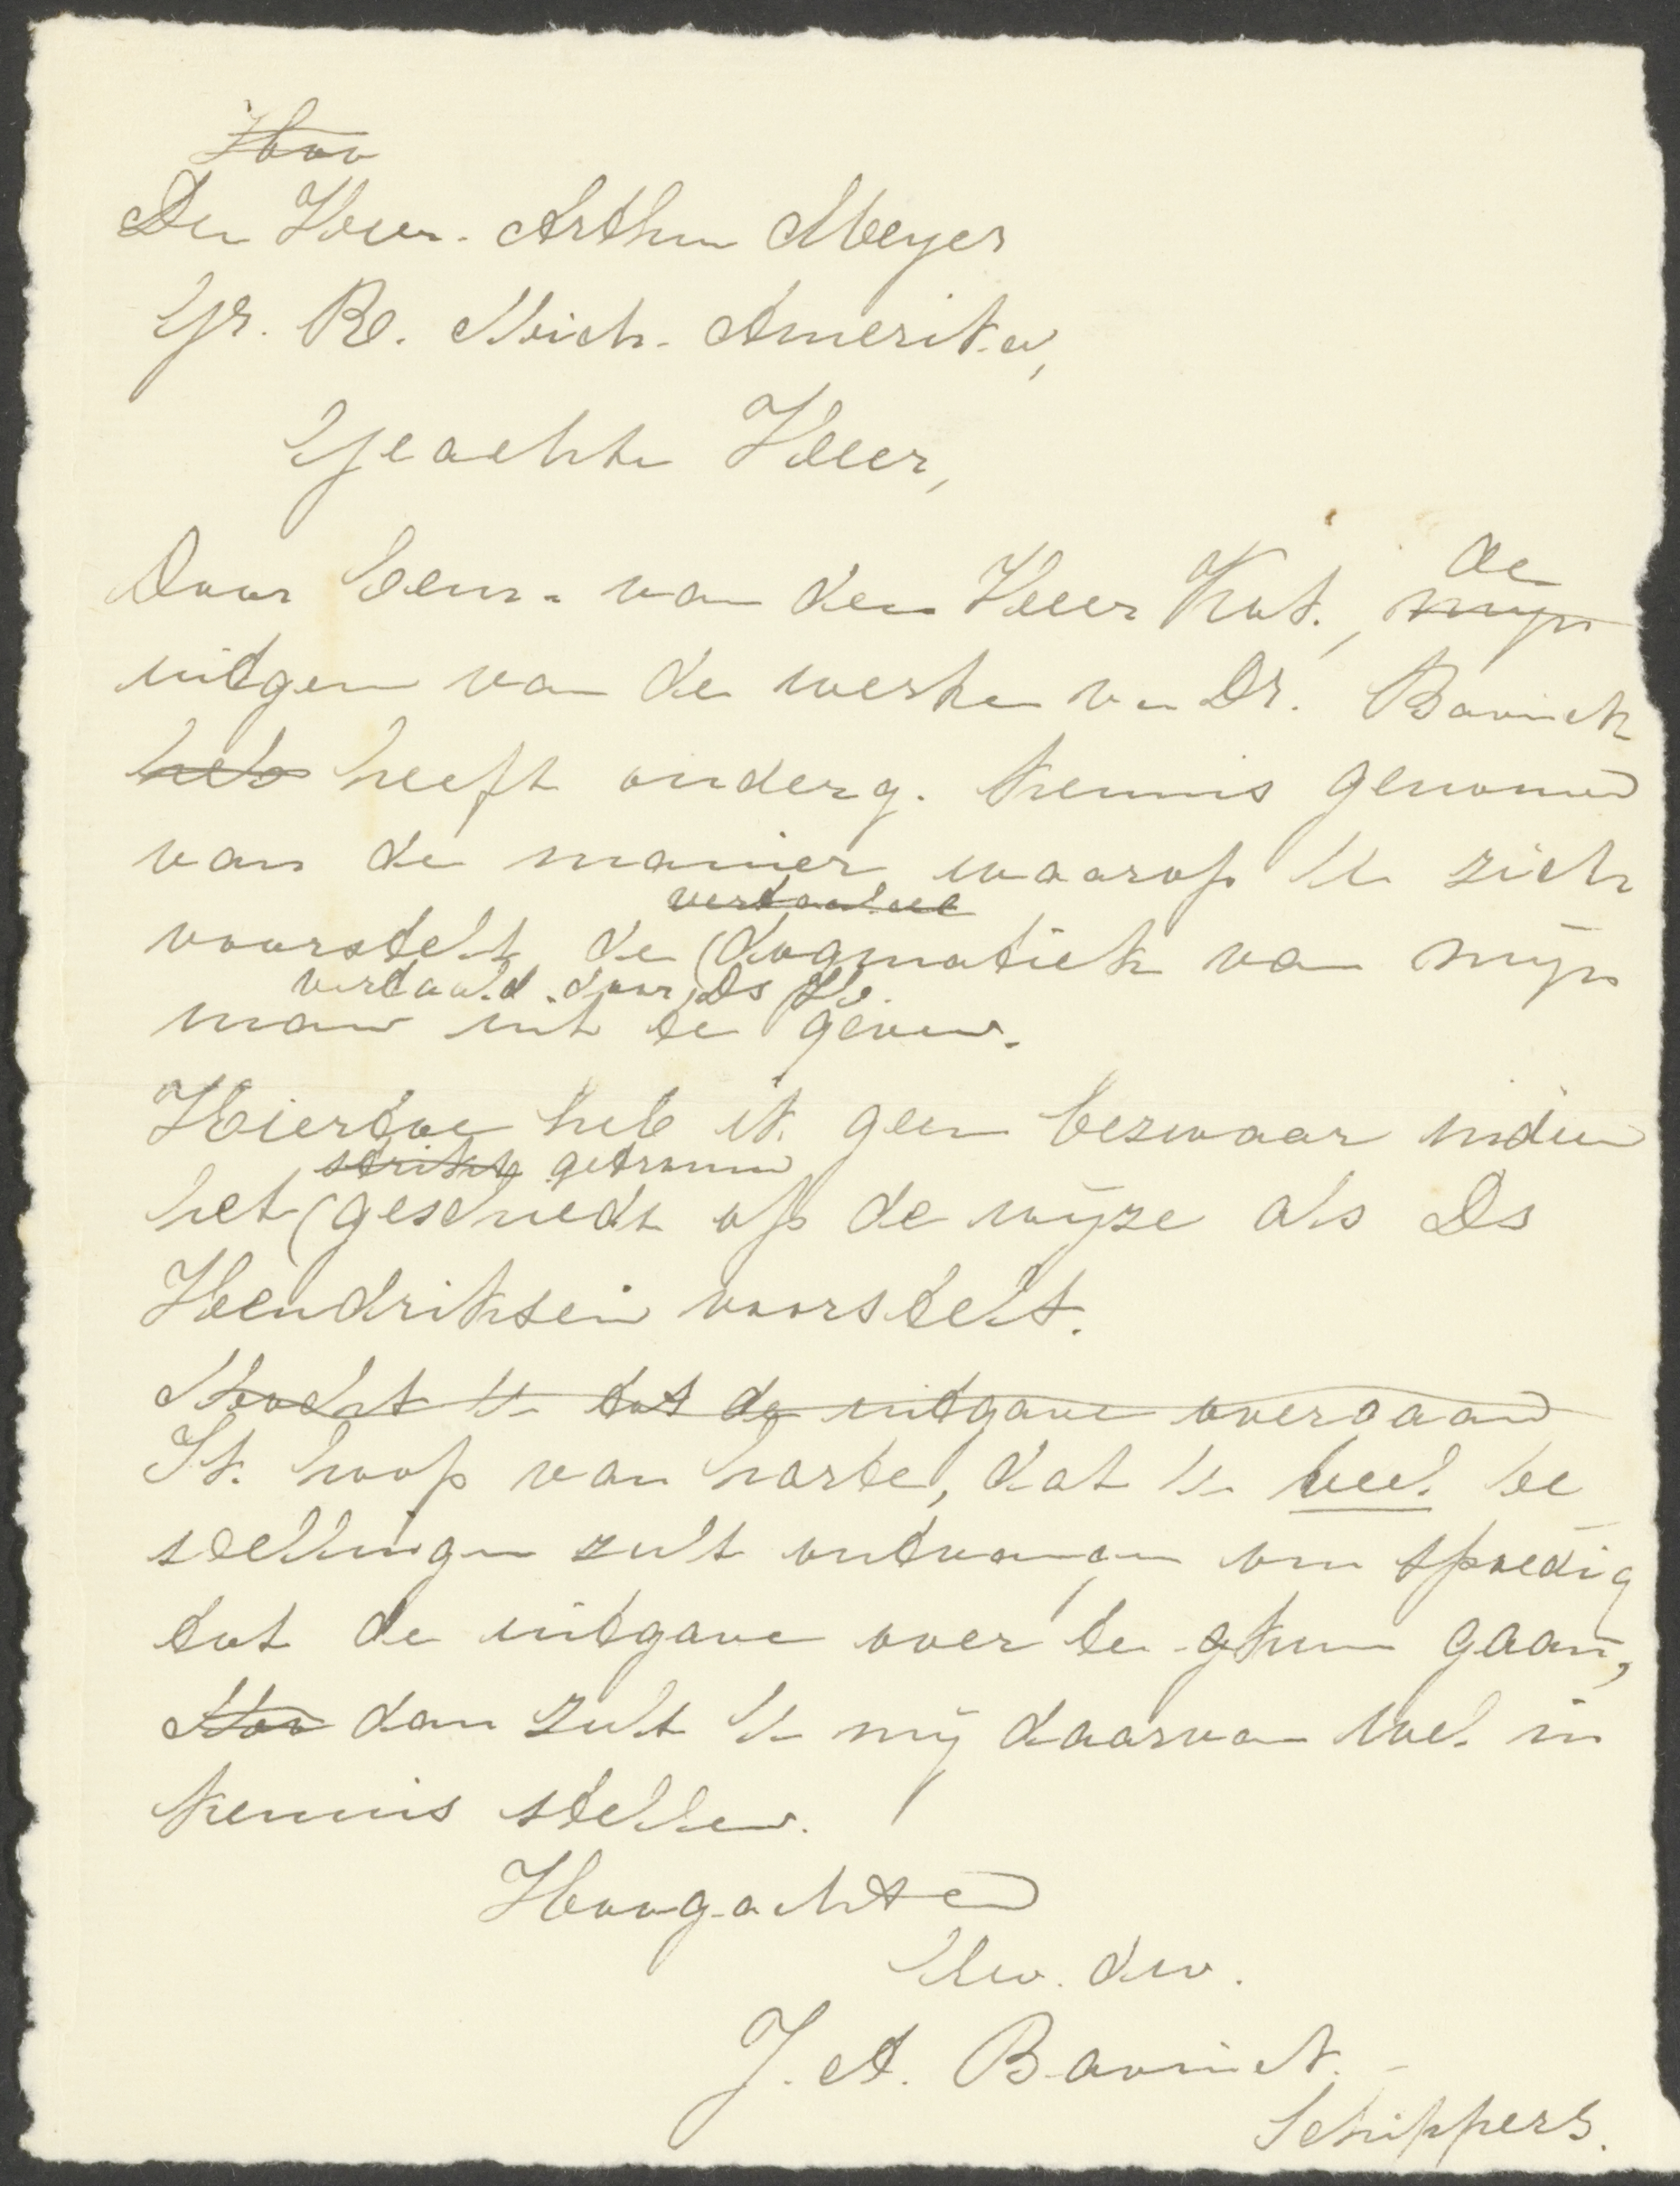 Hoo
Den Heer. Arthur Meyer
Gr. R. Mich. Amerika,
Geachte Heer,
de
Door bem. van den Heer Kok, mijn
uitgever van de werken van Dr. Bavinck
heb heeft onderg. kennis genomen
van de manier waarop U zich
vertaalde
voorstelt de (dogmatiek van mijn
vertaald door Ds H.
man uit te geven.
Hiertoe heb ik geen bezwaar indien
strikt getrouw
het (geschiedt op de wijze als Ds
Hendriksen voorstelt.
Mocht U tot de uitgave overgaan
Ik hoop van harte, dat U veel be
stellingen zult ontvangen om spoedig
tot de uitgave over te kunnen gaan,
dan zult U mij daarvan wel in
kennis stellen.
Hoogachtend
Uw. dw.
J. A. Bavinck. -
Schippers.